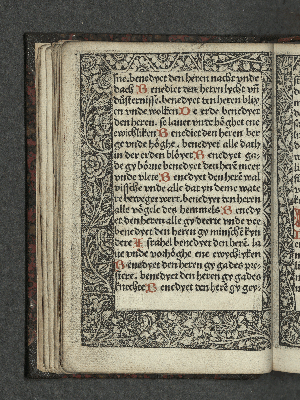 sne. benedyet den heren nacht vnde
dach Benedict den heren lychte vñ
düsternisse. benedyet den heren blix
en vnde wolken De erde benedyet
den heren. se lauet vnde höghet ene
ewichliken Benedict den heren ber
ge vnde höghe. benedyet alle dath
in der erden blöyet Benedyet ga-
de gy börne benedyet den herē meer
vnde vlete Benedyet den herē wal
vissche vnde alle dat yn deme wate
re beweget wert. benedyet den heren
alle vögele des hemmels Benedy
et den heren alle gy deerte vnde vee
benedyet den heren gy minschē kyn
dere Israhel benedyet den herē. la
ue vnde vorhöghe ene ewychlyken
Benedyet den heren gy gades pre-
stere. benedyet den heren gy gades
knechte Benedyet den herē gy gey-